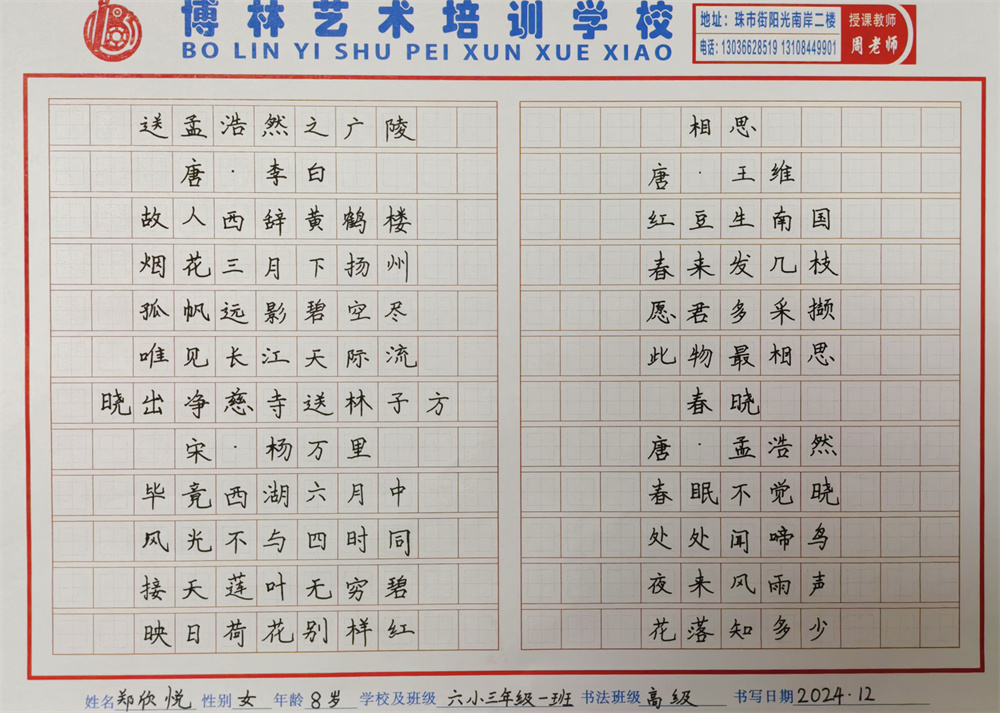 博林艺术培训学校
BO LIN YI SHU PEI XUN XUE XIAO
地址：珠市街阳光南岸二楼
电话：13036628519 13108449901
授课教师
周老师
送孟浩然之广陵
唐·李白
故人西辞黄鹤楼
烟花三月下扬州
孤帆远影碧空尽
唯见长江天际流
晓出净慈寺送林子方
宋·杨万里
毕竟西湖六月中
风光不与四时同
接天莲叶无穷碧
映日荷花别样红
相思
唐·王维
红豆生南国
春来发几枝
愿君多采撷
此物最相思
春晓
唐·孟浩然
春眠不觉晓
处处闻啼鸟
夜来风雨声
花落知多少
姓名 郑欣悦 性别 女 年龄 8岁 学校及班级 六小三年级一班 书法班级 高级 书写日期 2024.12